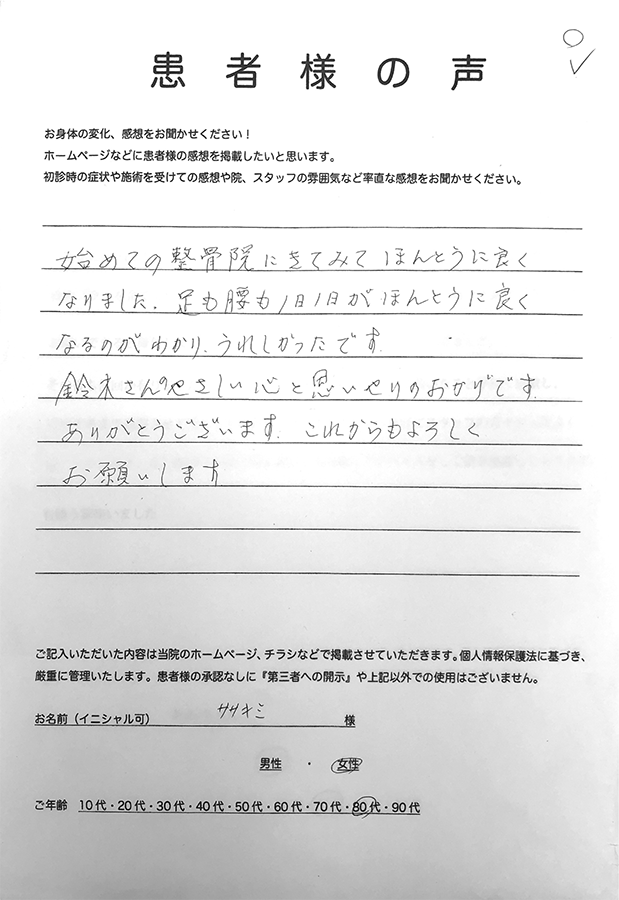 患者様の声
お身体の変化、感想をお聞かせください！
ホームページなどに患者様の感想を掲載したいと思います。
初診時の症状や施術を受けての感想や院、スタッフの雰囲気など率直な感想をお聞かせください。
始めての整骨院にきてみてほんとうに良く
なりました。足も腰も1日1日がほんとうに良く
なるのがわかり、うれしかったです。
鈴木さんのやさしい心と思いせりのおかげです。
ありがとうございます。これからもよろしく
お願いします
ご記入いただいた内容は当院のホームページ、チラシなどで掲載させていただきます。個人情報保護法に基づき、
厳重に管理いたします。患者様の承認なしに『第三者への開示』や上記以外での使用はございません。
お名前（イニシャル可） ササキミ 様
男性 ・ 女性
ご年齢 10代・20代・30代・40代・50代・60代・70代・80代・90代